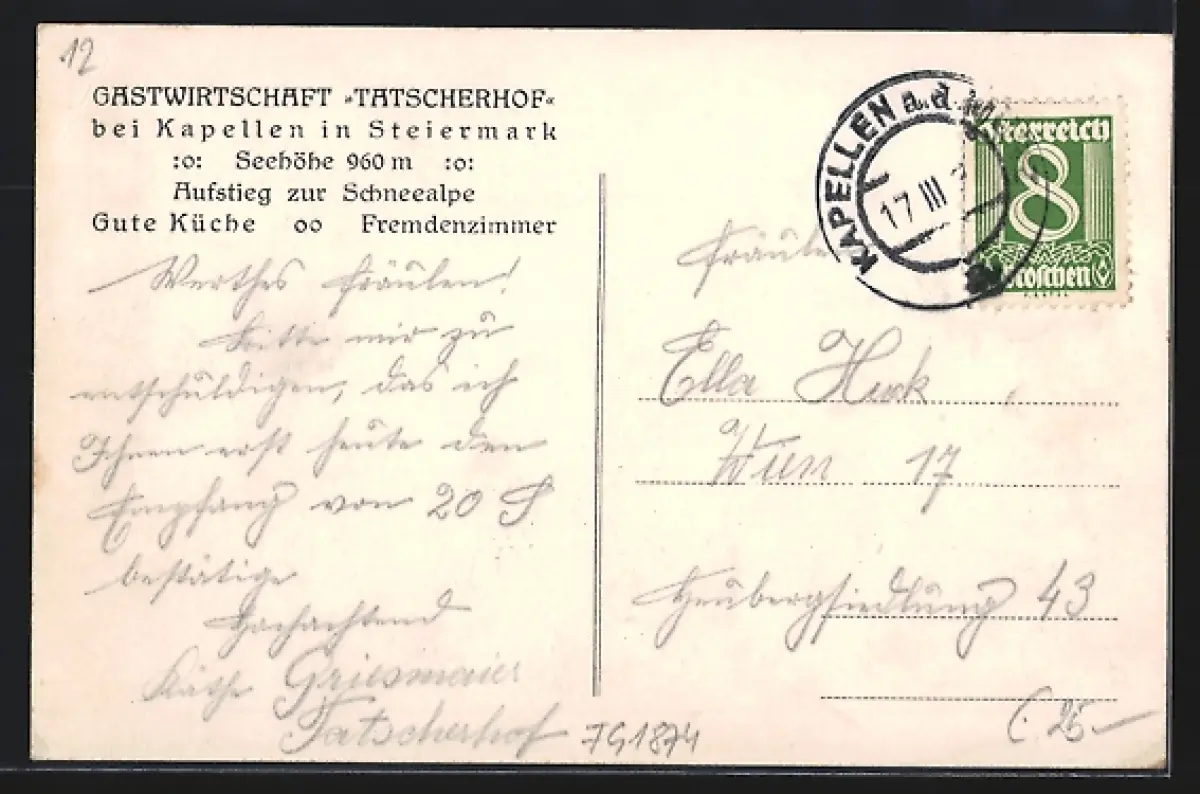 12
GASTWIRTSCHAFT »TATSCHERHOF«
bei Kapellen in Steiermark
:o: Seehöhe 960 m :o:
Aufstieg zur Schneealpe
Gute Küche oo Fremdenzimmer
Werthes Fräulen!
Bitte mir zu
entschuldigen, das ich
Ihnen erst heute den
Empfang von 20 S
bestätige
Hochachtend
Käthe Griesmaier
Tatscherhof
7G1874
KAPELLEN a. d.
17 III
Österreich
8
Groschen
Ella Huck,
Wien 17
Heubergsiedlung 43
25.-